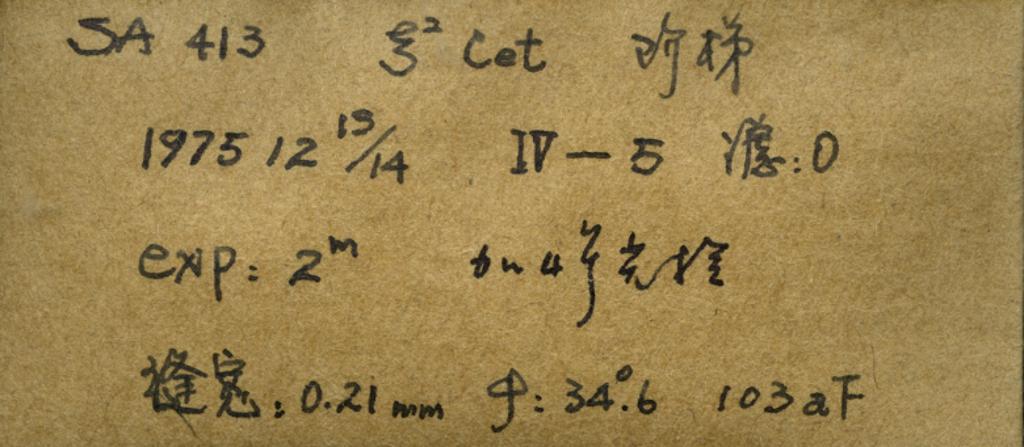 SA 413 ξ² Cet 阶梯
1975 12 13/14 IV-5 滤:0
exp: 2ᵐ 加4号光栏
缝宽: 0.21mm φ: 34°.6 103aF